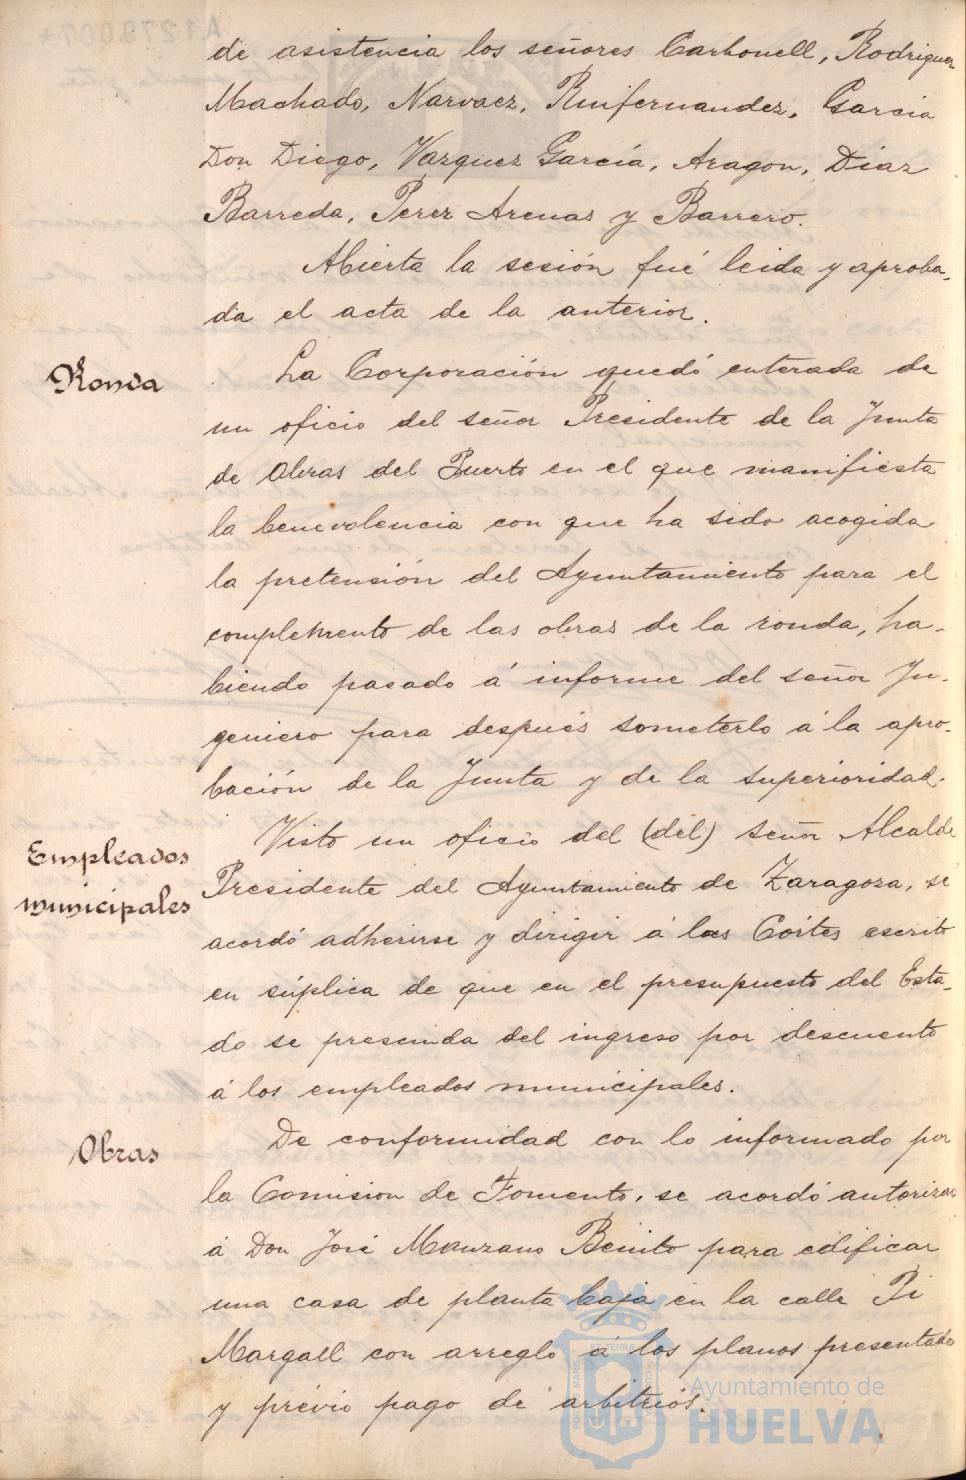 de asistencia los señores Carbonell, Rodriguez
Machado, Narvaez, Ruifernandez, Garcia
Don Diego, Vazquez García, Aragon, Diaz
Barreda, Perez Arenas y Barrero.
Abierta la sesión fué leida y aproba-
da el acta de la anterior.
Ronda
La Corporación quedó enterada de
un oficio del señor Presidente de la Junta
de Obras del Puerto en el que manifiesta
la benevolencia con que ha sido acogida
la pretensión del Ayuntamiento para el
complemento de las obras de la ronda, ha-
biendo pasado á informe del señor In-
geniero para después someterlo á la apro-
bación de la Junta y de la superioridad.
Empleados
municipales
Visto un oficio del (del) señor Alcalde
Presidente del Ayuntamiento de Zaragoza, se
acordó adherirse y dirigir á las Córtes escrito
en súplica de que en el presupuesto del Esta-
do se prescinda del ingreso por descuento
á los empleados municipales.
Obras
De conformidad con lo informado por
la Comision de Fomento, se acordó autorizar
á Don José Manzano Benito para edificar
una casa de planta baja en la calle Pi
Margall con arreglo á los planos presentados
y prévio pago de arbitrios.
Ayuntamiento de
HUELVA